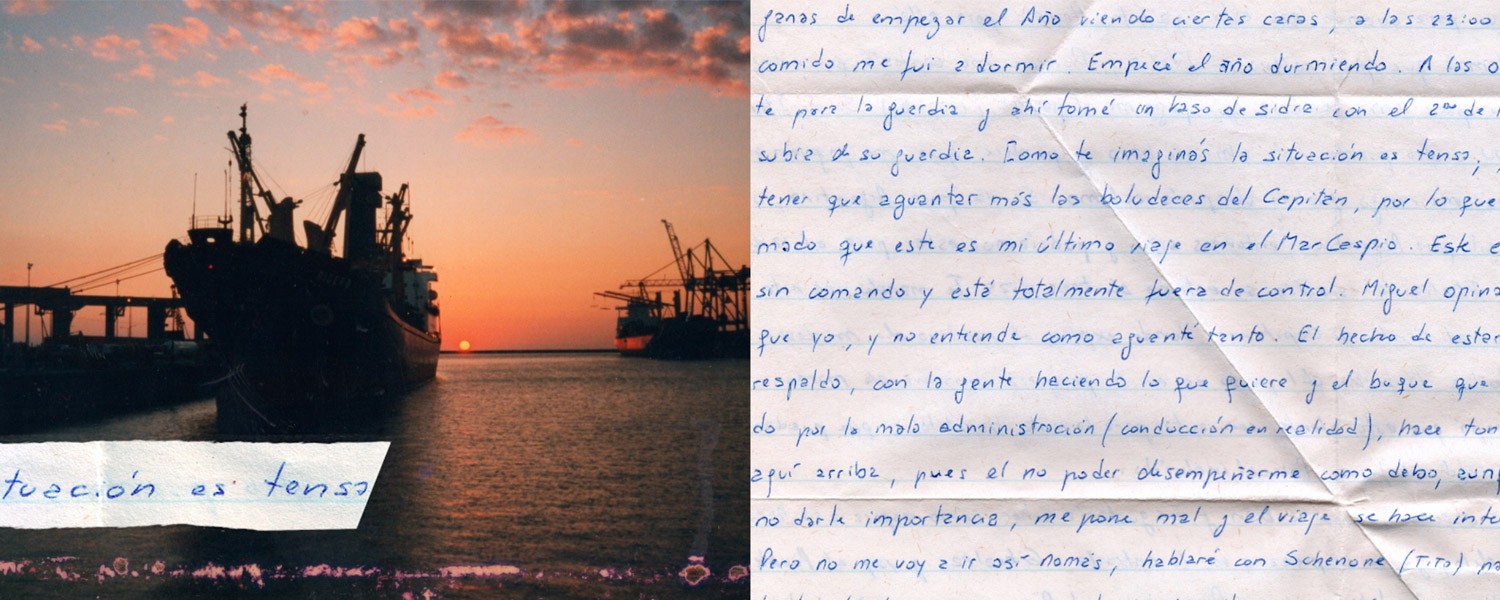 tuación es tensa
ganas de empezar el Año viendo ciertas caras, a las 23:00
comido me fui a dormir. Empecé el año durmiendo. A las 0
te para la guardia y ahí tomé un vaso de sidra con el 2do de
subía de su guardia. Como te imaginás la situación es tensa,
tener que aguantar más las boludeces del Capitán, por lo que
mado que este es mi último viaje en el Mar Caspio. Este
sin comando y está totalmente fuera de control. Miguel opina
que yo, y no entiende como aguenté tanto. El hecho de estar
respaldo, con la gente haciendo lo que quiere y el buque que
do por la mala administración (conducción en realidad), hace
aquí arriba, pues el no poder desempeñarme como debo,
no darle importancia, me pone mal y el viaje se hace
Pero no me voy a ir así nomás, hablaré con Schenone (Tito)